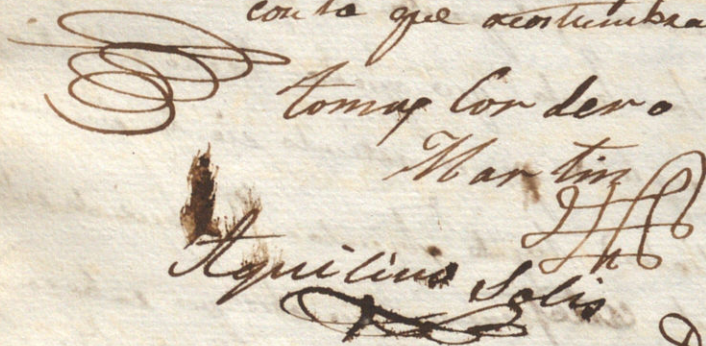 con la que acostumbra
Tomas Cordero
Martin
Aquilino Solis